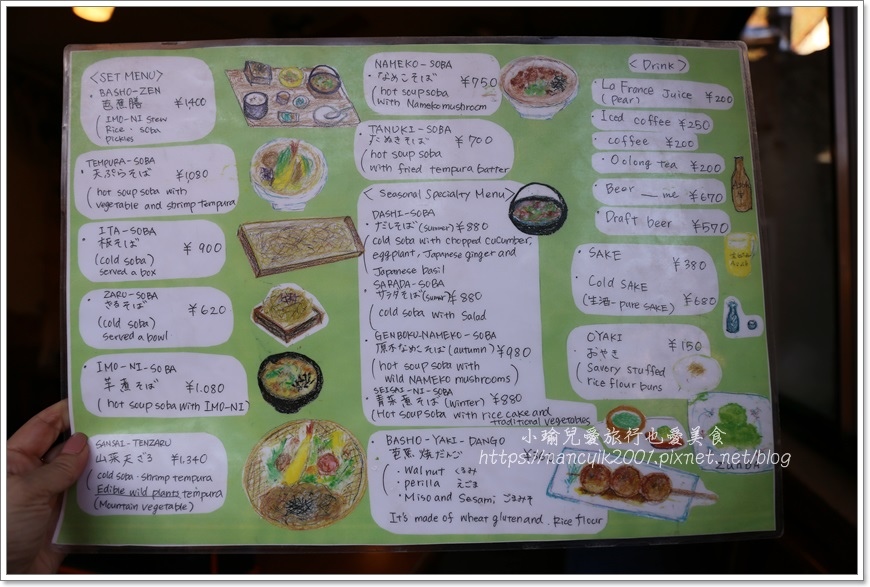 <SET MENU>
・BASHO-ZEN
芭蕉膳 ¥1400
(IMO-NI stew
Rice・soba
pickles
TEMPURA-SOBA
・天ぷらそば ¥1,080
(hot soup soba with
vegetable and shrimp tempura
ITA-SOBA
・板そば ¥900
(cold soba)
served a box
ZARU-SOBA
・ざるそば ¥620
(cold soba)
served a bowl
・IMO-NI-SOBA
芋煮そば ¥1.080
(hot soup soba with IMO-NI)
SANSAI-TENZARU
・山菜天ざる ¥1,340
(cold soba・shrimp tempura
Edible wild plants tempura
(Mountain vegetable)
NAMEKO-SOBA
・なめこそば ¥750
(hot soup soba
with Nameko mushroom
TANUKI-SOBA
・たぬきそば ¥700
(hot soba
with fried tempura batter
<Seasonal Specialty Menu>
DASHI-SOBA
・だしそば(summer) ¥880
(cold soba with chopped cucumber,
eggplant, Japanese ginger and
Japanese basil
SARADA-SOBA
・サラダそば(summer) ¥880
(cold soba with Salad
GENBOKU-NAMEKO-SOBA
・原木なめこそば(autumn) ¥980
(hot soup soba with
wild NAMEKO mushrooms)
SEISAI-NI-SOBA
・青菜煮そば(winter) ¥880
(Hot soup soba with rice cake and
traditional vegetables
BASHO-YAKI-DANGO
・芭蕉焼だんご
(・Walnut くるみ
・perilla えごま
・Miso and Sesami ごまみそ
It's made of wheat gluten and rice flour
<Drink>
・La France Juice ¥200
(pear)
・Iced coffee ¥250
・coffee ¥200
・Oolong tea ¥200
・Beer ¥670
・Draft beer ¥570
・SAKE ¥380
・Cold SAKE
(生酒-pure SAKE) ¥680
OYAKI ¥150
・おやき
(Savory stuffed
rice flour buns
小瑜兒愛旅行也愛美食
https://nancyik2001.pixnet.net/blog